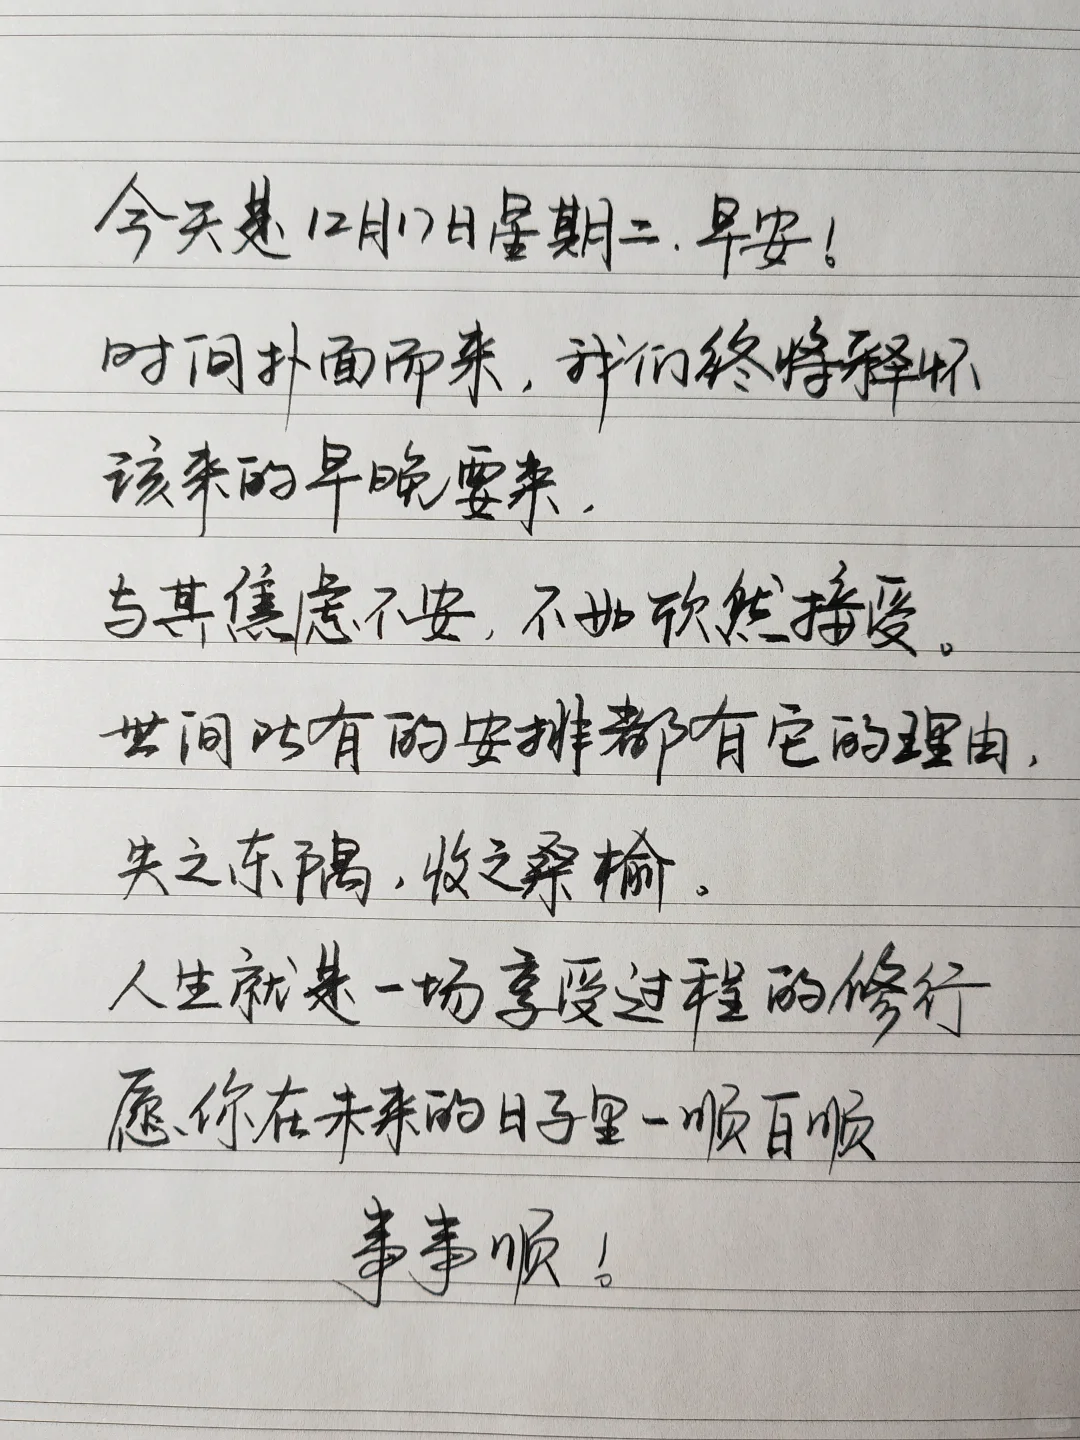 今天是12月17日星期二.早安!
时间扑面而来,我们终将释怀
该来的早晚要来,
与其焦虑不安,不如欣然接受。
世间所有的安排都有它的理由,
失之东隅,收之桑榆。
人生就是一场享受过程的修行
愿你在未来的日子里一顺百顺
事事顺!